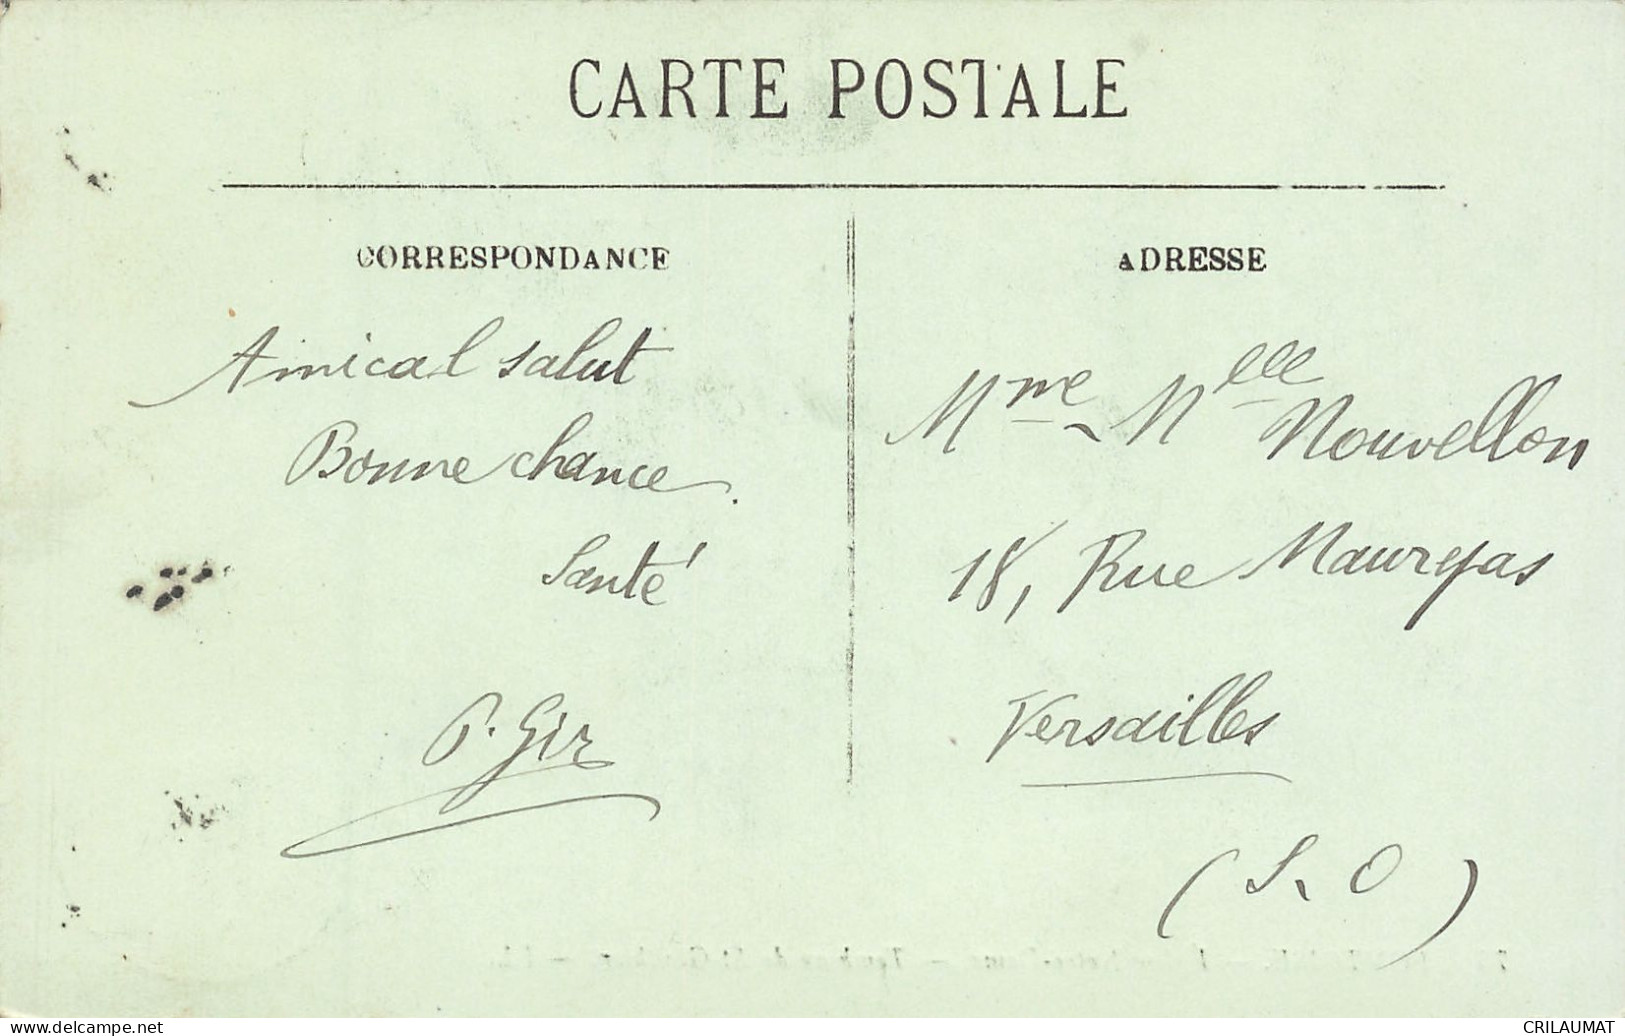 CARTE POSTALE
CORRESPONDANCE
Amical salut
Bonne chance.
Santé
P. Gir
ADRESSE
Mme Mlle Nouvellon
18, Rue Maurepas
Versailles
(S. O)
delcampe.net
CRILAUMAT